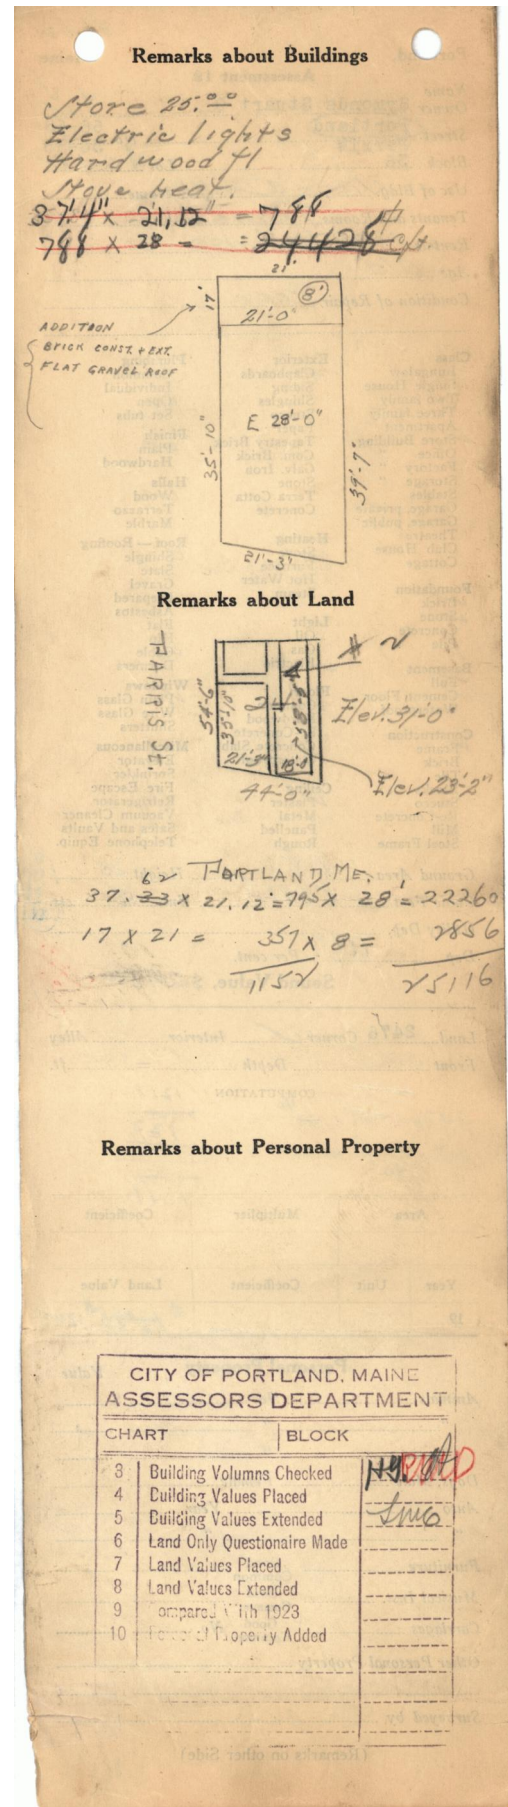 Remarks about Buildings
Store 25.00
Electric lights
Hardwood fl
Stove heat.
37'4" x 21,12" = 788
788 x 28 = = 24428 c/t.
21'
17'
8'
21'-0"
ADDITION
BRICK CONST. + EXT.
FLAT GRAVEL ROOF
E 28'-0"
35'-10"
39'-7"
21'-3"
Remarks about Land
FARRIS ST.
# 2
54'-6"
35'-10"
2
Elev. 31'-0"
21'-3"
18'-0"
44'-0"
Elev. 23'-2"
PORTLAND ME.
62
37.33 x 21.12' = 795 x 28' = 22260
17 x 21 = 357 x 8 = 2856
1152 25116
Remarks about Personal Property
CITY OF PORTLAND, MAINE
ASSESSORS DEPARTMENT
CHART BLOCK
3 Building Volumns Checked
4 Building Values Placed
5 Building Values Extended
6 Land Only Questionaire Made
7 Land Values Placed
8 Land Values Extended
9 Compared With 1923
10 Personal Property Added
(Remarks on other Side)